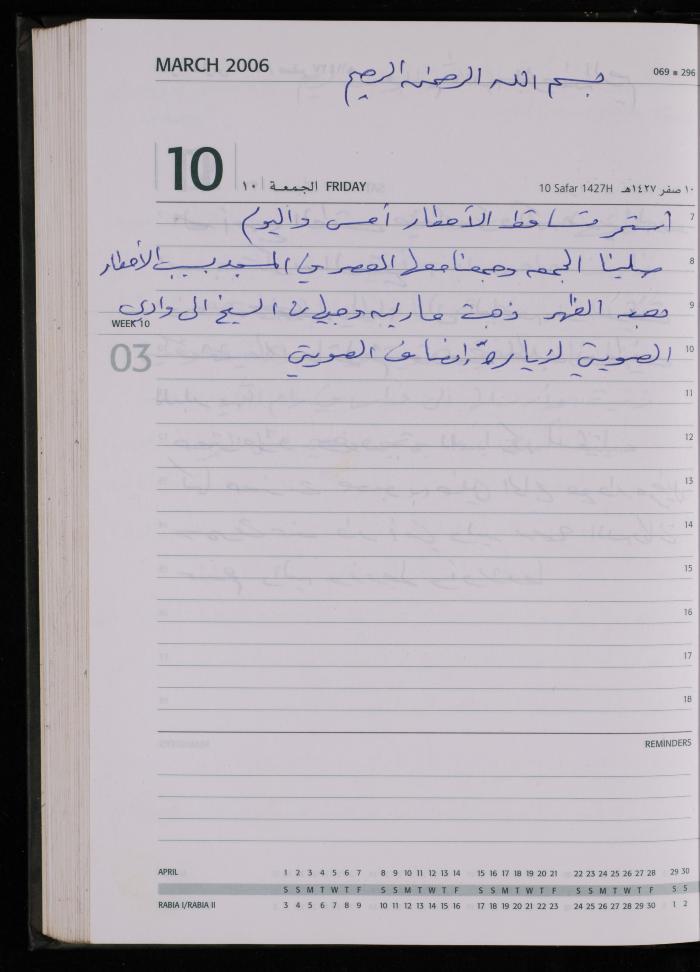 MARCH 2006
بسم الله الرحمن الرحيم
069 ▪ 296
10 الجمعة ١٠ FRIDAY 10 Safar 1427H ١٠ صفر ١٤٢٧هـ
7 أستمر تساقط الأمطار أمس واليوم
8 صلينا الجمعه وجمعنا معها العصر في المسجد بسبب الأمطار
9 بعد الظهر ذهبت الشيخ الى وادى
WEEK 10
10 الصويتي لزيارة الصويتي
03
11
12
13
14
15
16
17
18
REMINDERS
APRIL 1 2 3 4 5 6 7 8 9 10 11 12 13 14 15 16 17 18 19 20 21 22 23 24 25 26 27 28 29 30
S S M T W T F S S M T W T F S S M T W T F S S M T W T F S S
RABIA I/RABIA II 3 4 5 6 7 8 9 10 11 12 13 14 15 16 17 18 19 20 21 22 23 24 25 26 27 28 29 30 1 2